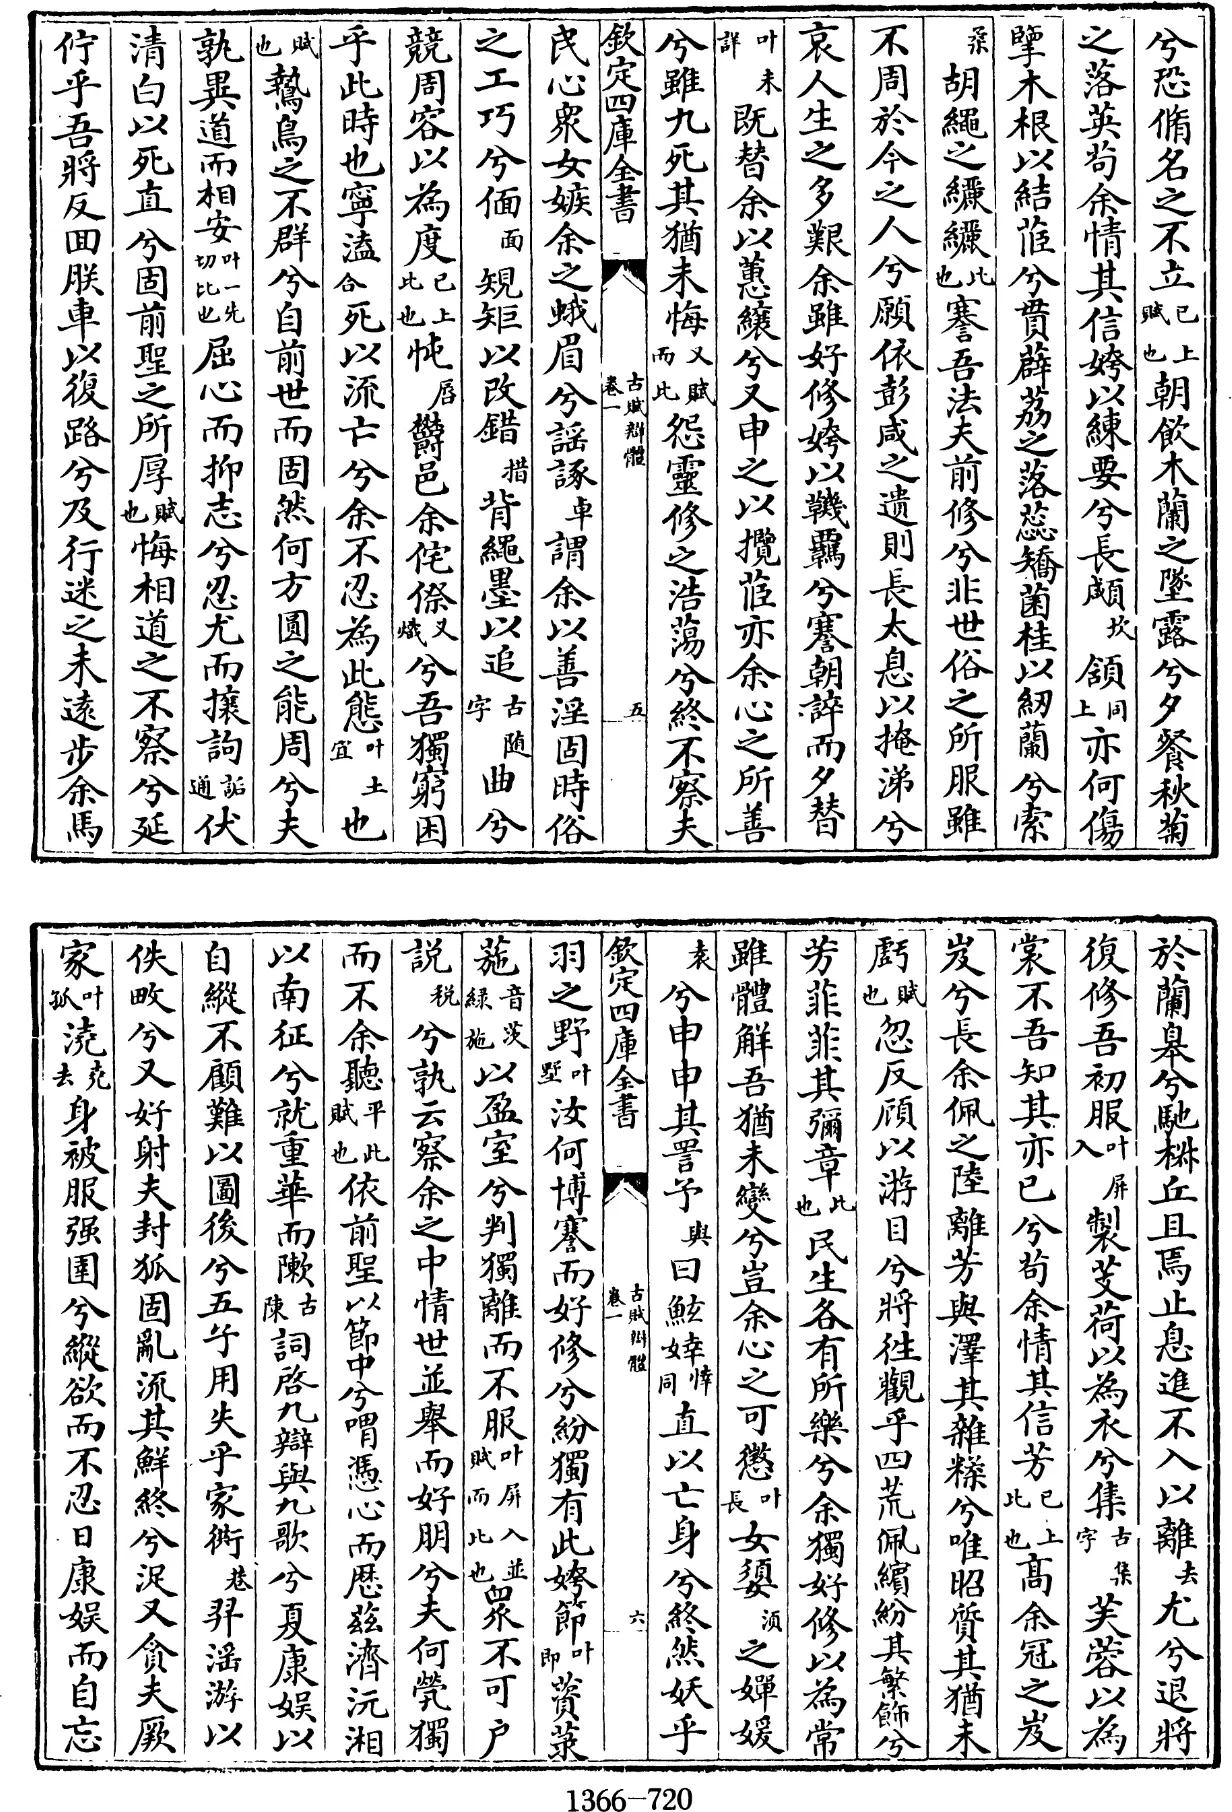 兮恐脩名之不立已上賦也朝飲木蘭之墜露兮夕餐秋菊
之落英苟余情其信姱以練要兮長顑坎頷同上亦何傷
擥木根以結茝兮貫薜荔之落蘂矯菌桂以紉蘭兮索
桑胡繩之纚纚比也謇吾法夫前修兮非世俗之所服雖
不周於今之人兮願依彭咸之遺則長太息以掩涕兮
哀人生之多艱余雖好修姱以鞿羈兮謇朝誶而夕替
叶未詳既替余以蕙纕兮又申之以攬茝亦余心之所善
兮雖九死其猶未悔又賦而比怨靈修之浩蕩兮終不察夫
欽定四庫全書
古賦辯體
卷一
五
民心衆女嫉余之蛾眉兮謡諑卓謂余以善淫固時俗
之工巧兮偭面規矩以改錯措背繩墨以追古隨字曲兮
競周容以為度已上比也忳鬱邑余侘傺又熾兮吾獨窮困
乎此時也寧溘合死以流亡兮余不忍為此態叶土宜也
賦也鷙鳥之不群兮自前世而固然何方圓之能周兮夫
孰異道而相安叶一先切比也屈心而抑志兮忍尤而攘詢詬通伏
清白以死直兮固前聖之所厚賦也悔相道之不察兮延
佇乎吾將反囬朕車以復路兮及行迷之未遠步余馬
於蘭臯兮馳椒丘且焉止息進不入以離去尤兮退將
復修吾初服叶屏入製芰荷以為衣兮集古集字芙蓉以為
裳不吾知其亦已兮苟余情其信芳已上比也高余冠之岌
岌兮長余佩之陸離芳與澤其雜糅兮唯昭質其猶未
虧賦也忽反顧以游目兮將徃觀乎四荒佩繽紛其繁飾兮
芳菲菲其彌章比也民生各有所樂兮余獨好修以為常
雖體解吾猶未變兮豈余心之可懲叶長女嬃須之嬋媛
袁兮申申其詈予與曰鮌婞悻同直以亡身兮終然殀乎
欽定四庫全書
古賦辯體
卷一
六
羽之野叶墅汝何博謇而好修兮紛獨有此姱節叶即薋菉
葹音茨綠施以盈室兮判獨離而不服叶屏入並賦而比也衆不可户
説税兮孰云察余之中情世並舉而好朋兮夫何煢獨
而不余聽平此賦也依前聖以節中兮喟憑心而厯兹濟沅湘
以南征兮就重華而敶古陳詞啓九辯與九歌兮夏康娱以
自縱不顧難以圖後兮五子用失乎家衖巷羿淫游以
佚畋兮又好射夫封狐固亂流其鮮終兮浞又貪夫厥
家叶孤澆尭去身被服强圉兮縱欲而不忍日康娱而自忘
1366-720